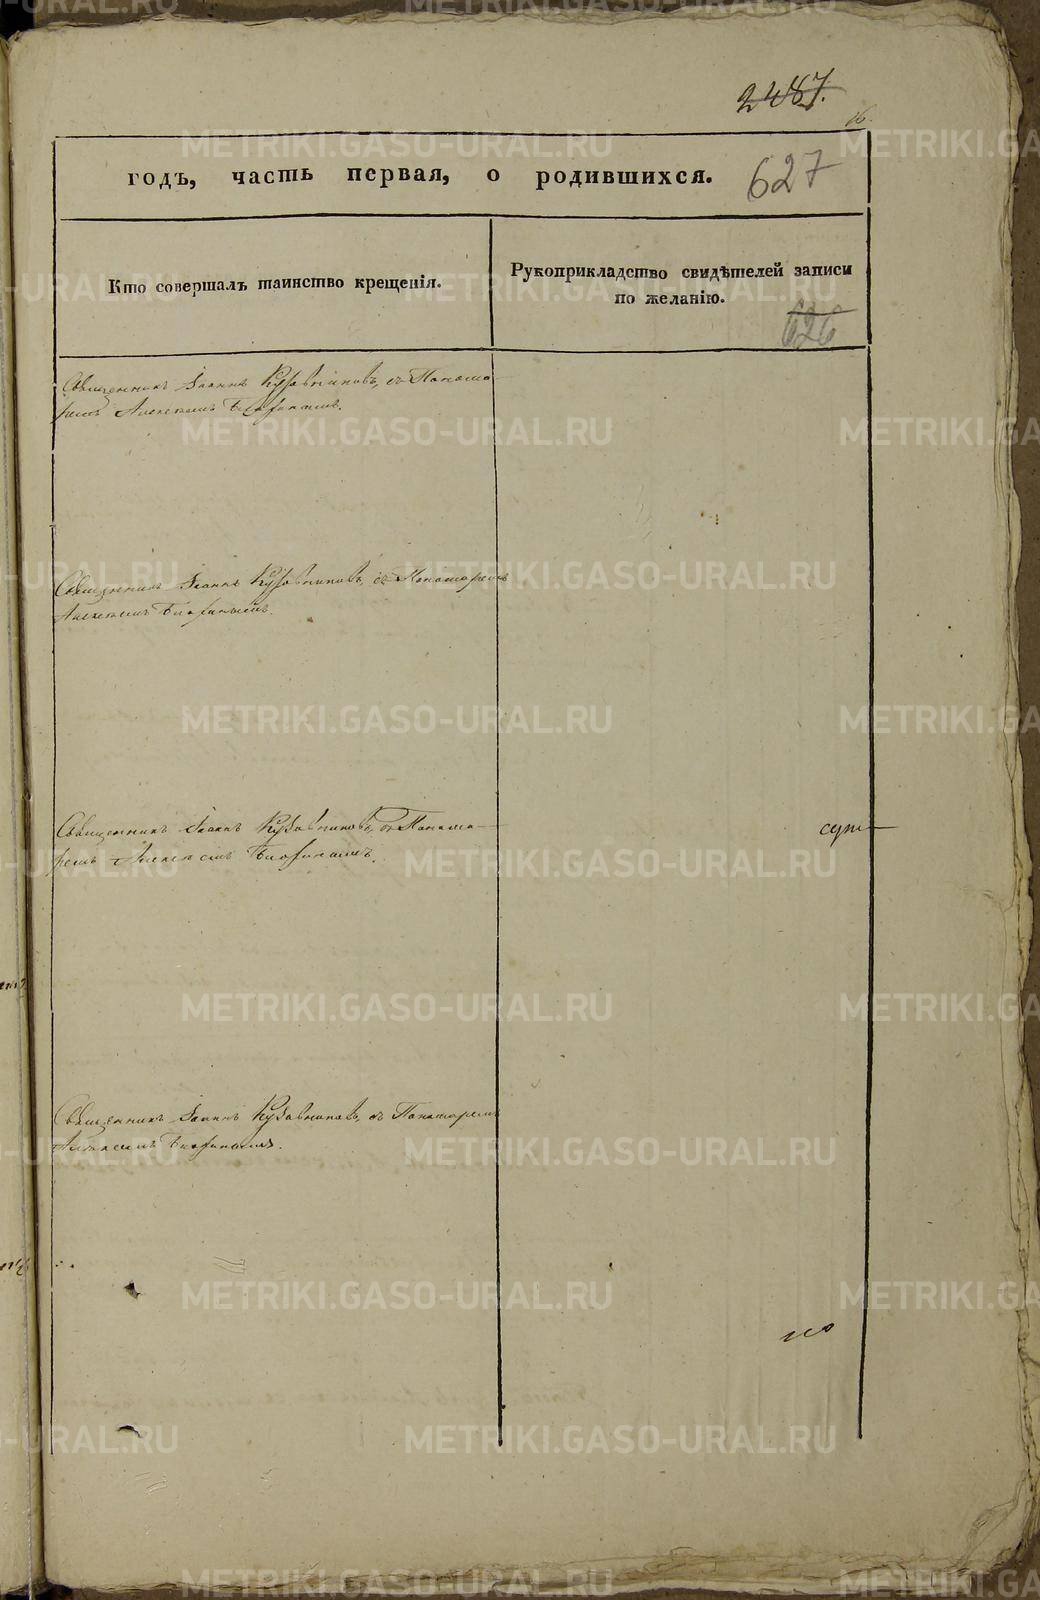 2487.
16.
годъ, часть первая, о родившихся. 627
Кто совершалъ таинство крещенія.
Рукоприкладство свидѣтелей записи
по желанію.
626
Священникъ Іоаннъ Кузовниковъ, съ Понома-
ремъ Алексѣемъ
Священникъ Іоаннъ Кузовниковъ, съ Пономаремъ
Алексѣемъ
Священникъ Іоаннъ Кузовниковъ, съ Понома-
ремъ Алексѣемъ
Священникъ Іоаннъ Кузовниковъ, съ Пономаремъ
Алексѣемъ
METRIKI.GASO-URAL.RU